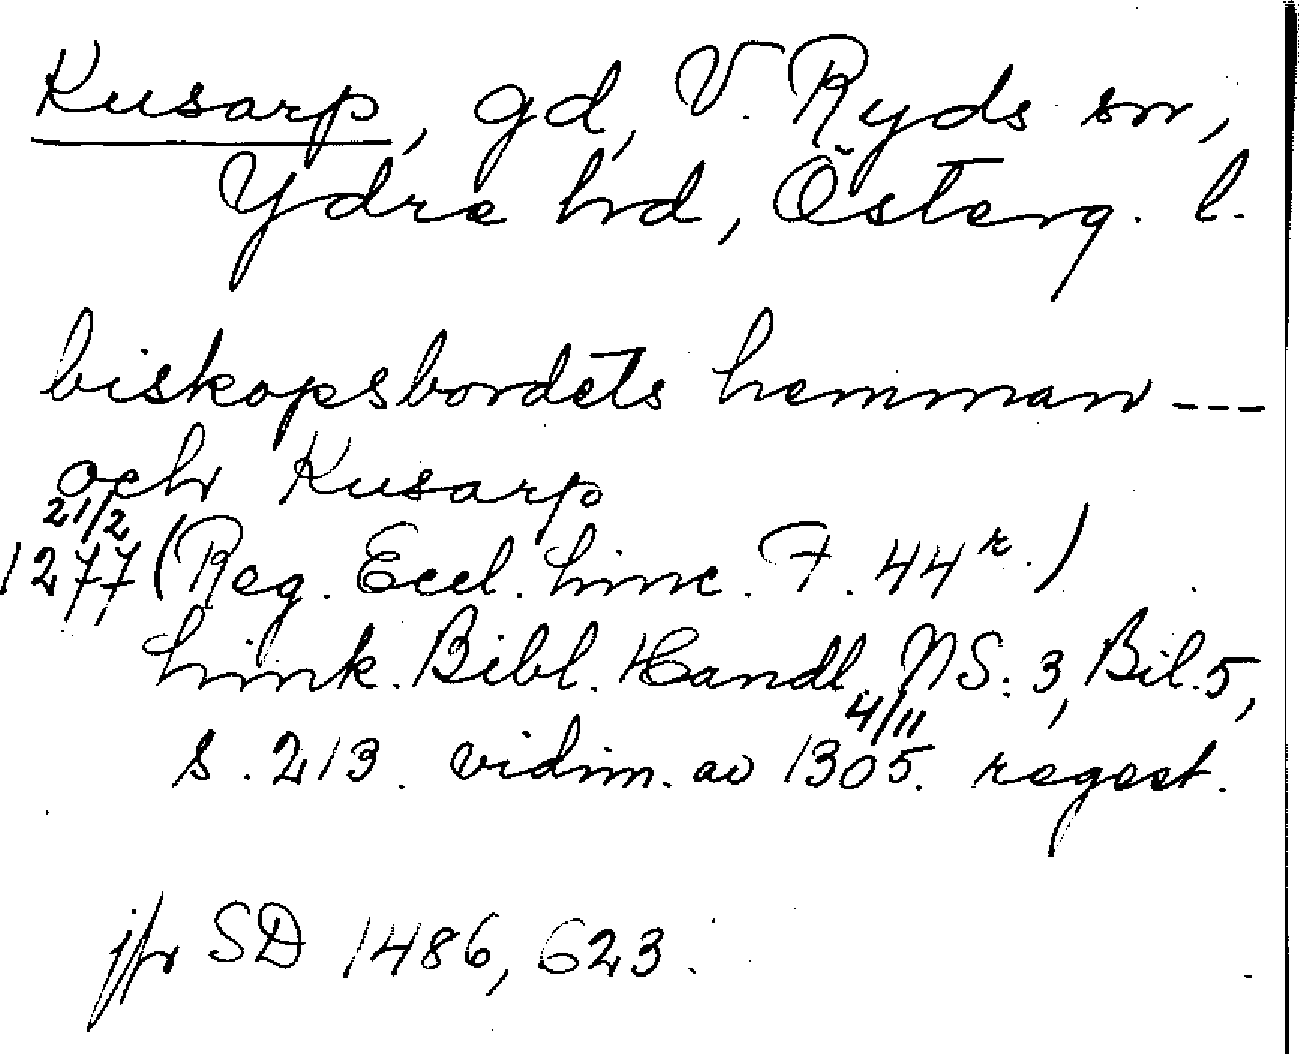 Kusarp, gd, V. Ryds sn,
Ydre hd, Österg. l.
biskopsbordets hemman ---
och Kusarp
21/2
1277 (Reg. Eccl. Linc. F. 44 r.)
Link. Bibl. Handl. NS. 3, Bil. 5,
4/11
s. 213. vidim. av 1305. regest.
jfr SD 1486, 623.